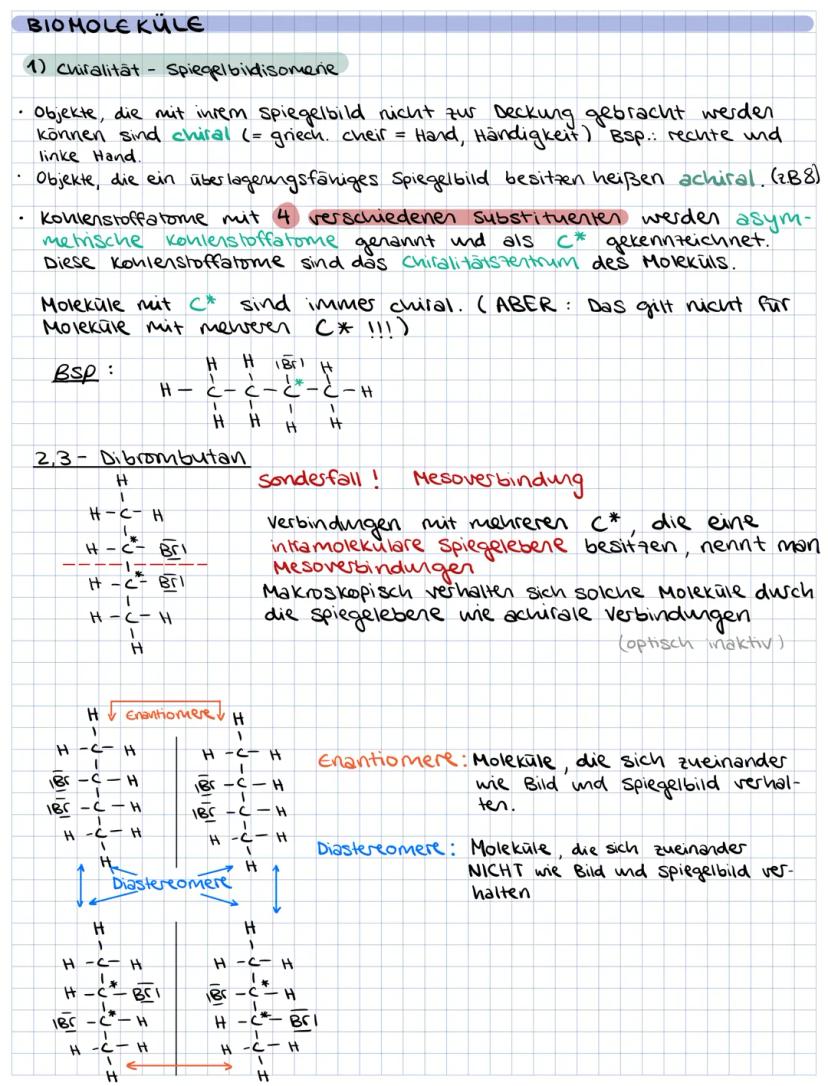 BIOMOLEKÜLE
1) Chiralität - Spiegelbildisomerie
· Objekte, die mit ihrem Spiegelbild nicht zur Deckung gebracht werden
können sind chiral (= griech. cheir = Hand, Händigkeit) Bsp.: rechte und
linke Hand.
· Objekte, die ein überlagerungsfähiges Spiegelbild besitzen heißen achiral. (zB 8)
· Kohlenstoffatome mit 4 verschiedenen Substituenten werden asym-
metrische Kohlenstoffatome genannt und als C* gekennzeichnet.
Diese Kohlenstoffatome sind das Chiralitätszentrum des Moleküls.
Moleküle mit C* sind immer chiral. (ABER: Das gilt nicht für
Moleküle mit mehreren C* !!!)
Bsp:
H H |Br| H
H - C - C - C* - C - H
H H H H
2,3- Dibrombutan
H
H - C - H
H - C* - Br|
H - C* - Br|
H - C - H
H
Sonderfall! Mesoverbindung
Verbindungen mit mehreren C*, die eine
intramolekulare Spiegelebene besitzen, nennt man
Mesoverbindungen
Makroskopisch verhalten sich solche Moleküle durch
die Spiegelebene wie achirale Verbindungen
(optisch inaktiv)
H Enantiomere H
H - C - H H - C - H
|Br - C - H |Br - C - H
|Br - C - H |Br - C - H
H - C - H H - C - H
H H
Enantiomere: Moleküle, die sich zueinander
wie Bild und Spiegelbild verhal-
ten.
Diastereomere: Moleküle, die sich zueinander
NICHT wie Bild und Spiegelbild ver-
halten
Diastereomere
H H
H - C - H H - C - H
H - C* - Br| |Br - C* - H
|Br - C* - H H - C* - Br|
H - C - H H - C - H
H H